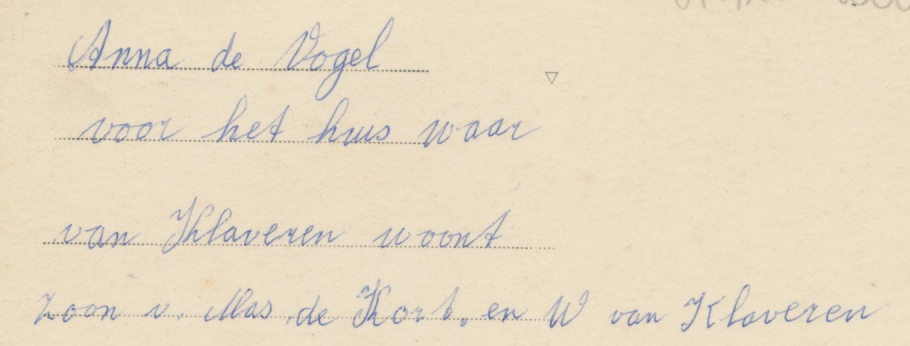 Anna de Vogel
voor het huis waar
van Klaveren woont
Zoon v. Mas de Kort. en W van Klaveren